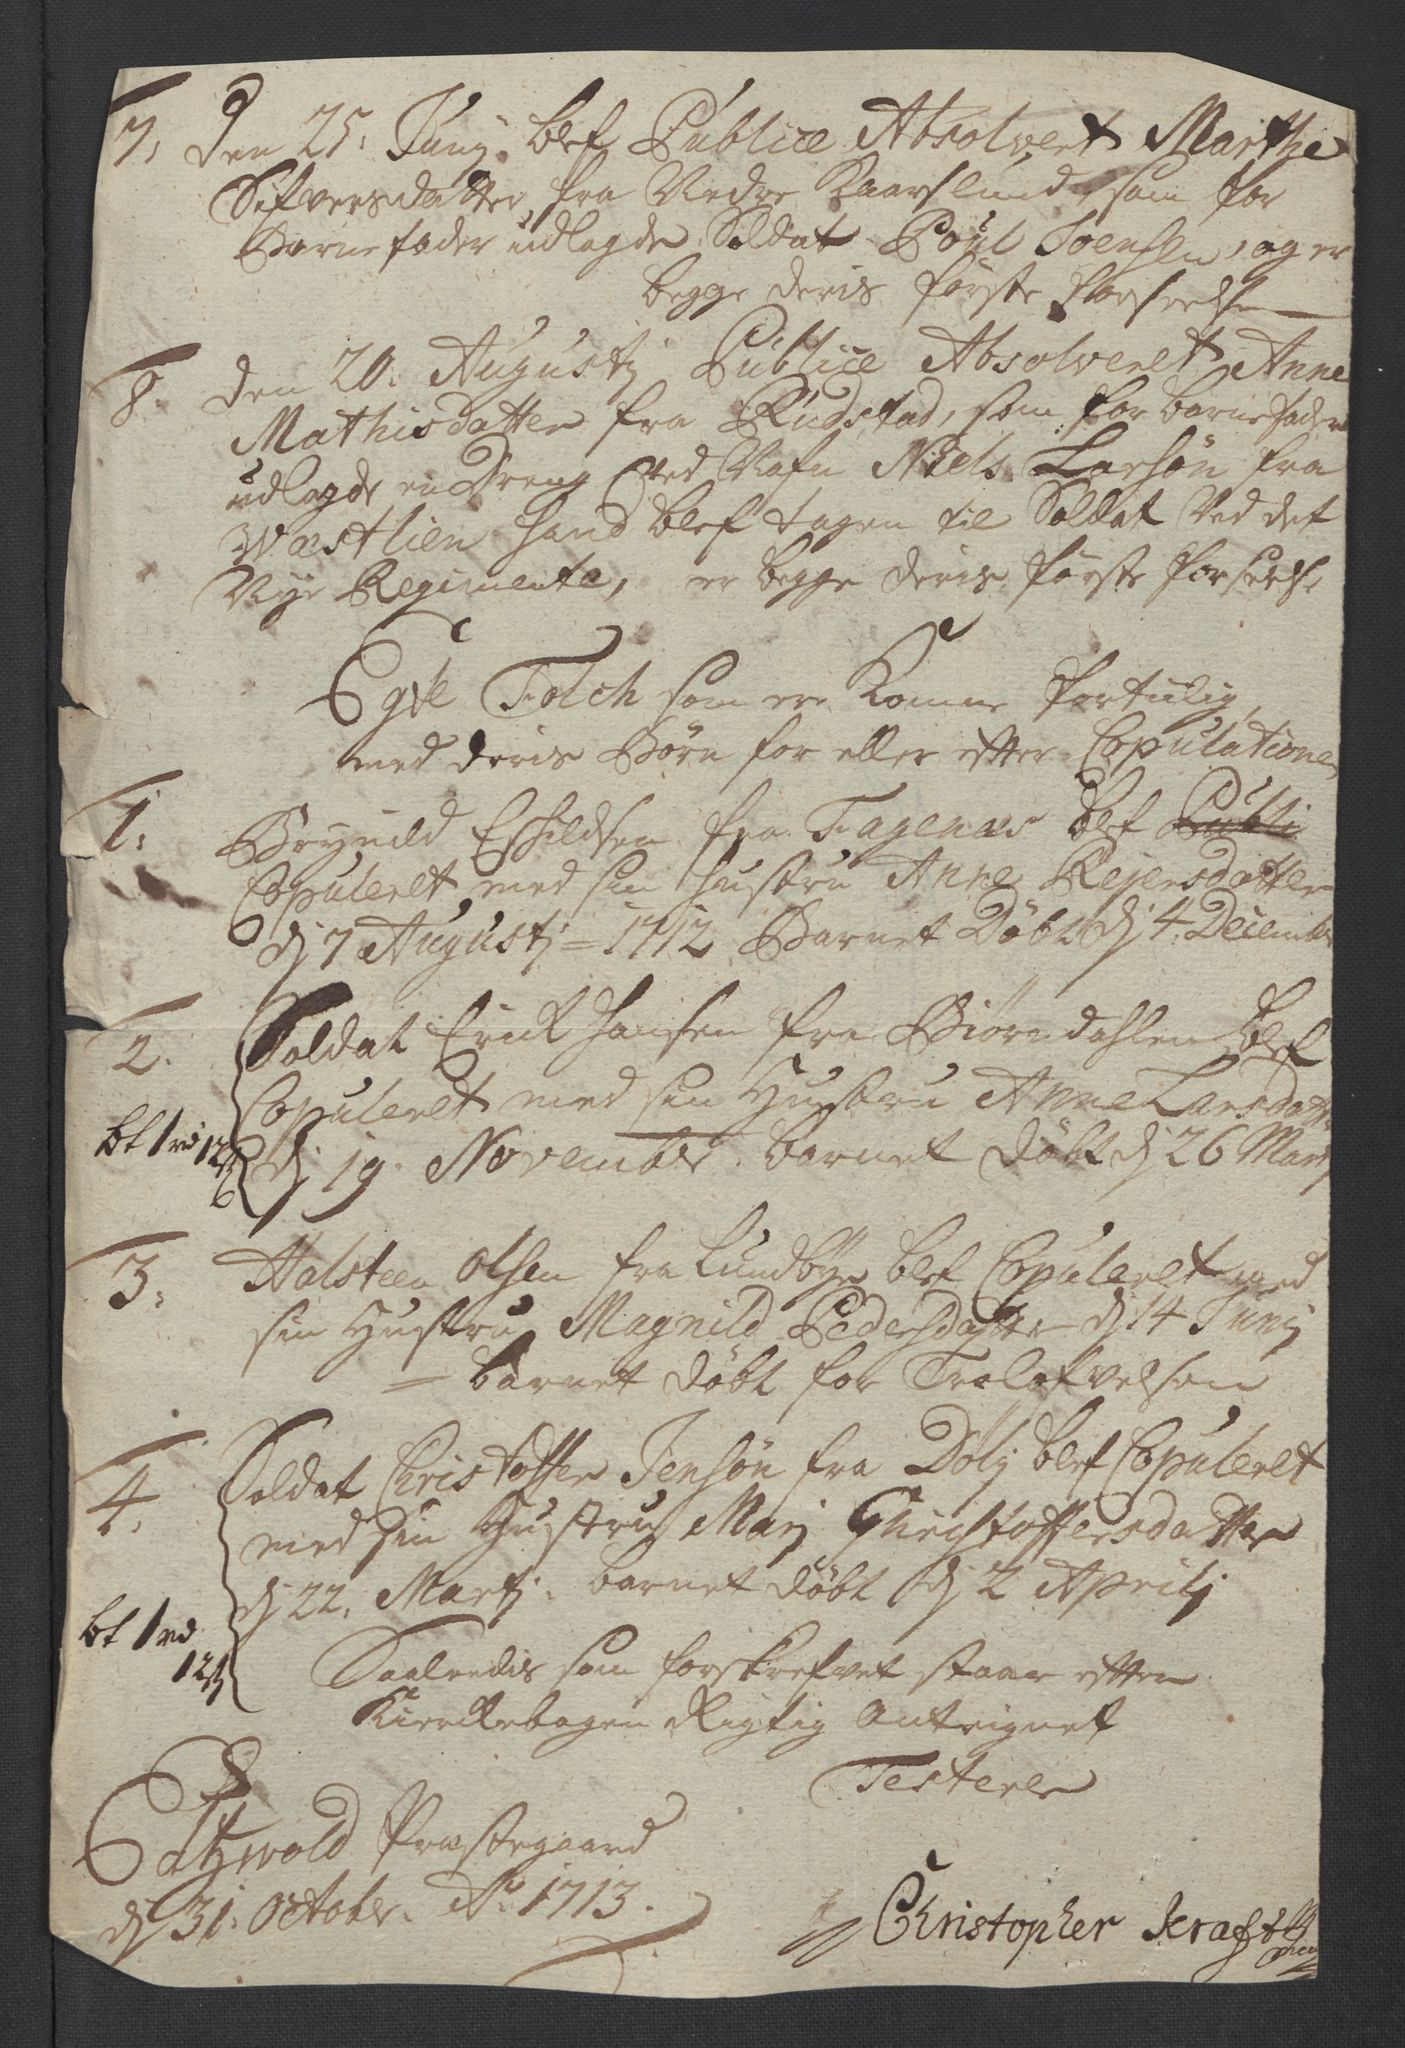 7. Den 25. Junij blef Publice Absolvert Marthe
Sifversdatter fra Nedre Kaarslund, som for
Barnefader udlagde Soldat Poul Joensen, og er
begge deris første forseelse
8. den 20. Augustj Publice Absolveret Anne
Mathisdatter fra Rudstad, som for barnefader
udlagde en Dreng Ved Nafn Niels Larsøn fra
Wæstlien hand blef tagen til Soldat Ved det
Nye Regimente, er begge deris første forseelse
Egte Folch som ere Komne fortilig
med deris Børn for eller efter Copulationen
1. Brynild Eskildsen fra Fagernæs blef Publi
Copuleret med sin Hustru Anne Rejersdatter
dj 7 Augustj = 1712 Barnet Døbt dj 4. December
2. Soldat Erick Hansen fra Biørndahlen blef
Copuleret med sin Hustru Anne Larsdatter
bt 1 rd 12 s dj 19. November. barnet døbt dj 26 Martj
3. Halsteen Olsen fra Lundbye blef Copuleret med
sin Hustru Magnild Pedersdatter dj 14 Junij
= barnet døbt for Trolofvelsen
4. Soldat Christoffer Jensøn fra Dølj blef Copuleret
med sin Hustru Marj Christoffersdatter
dj 22. Martj. barnet døbt dj 2 Aprilj
bt 1 rd
12 s
Saaledis som forskrefvet staar efter
Kierckebogen Rigtig Antegnet
Testerer
Præstegaard
dj 31. October. Ao 1713.
Christopher Krafft